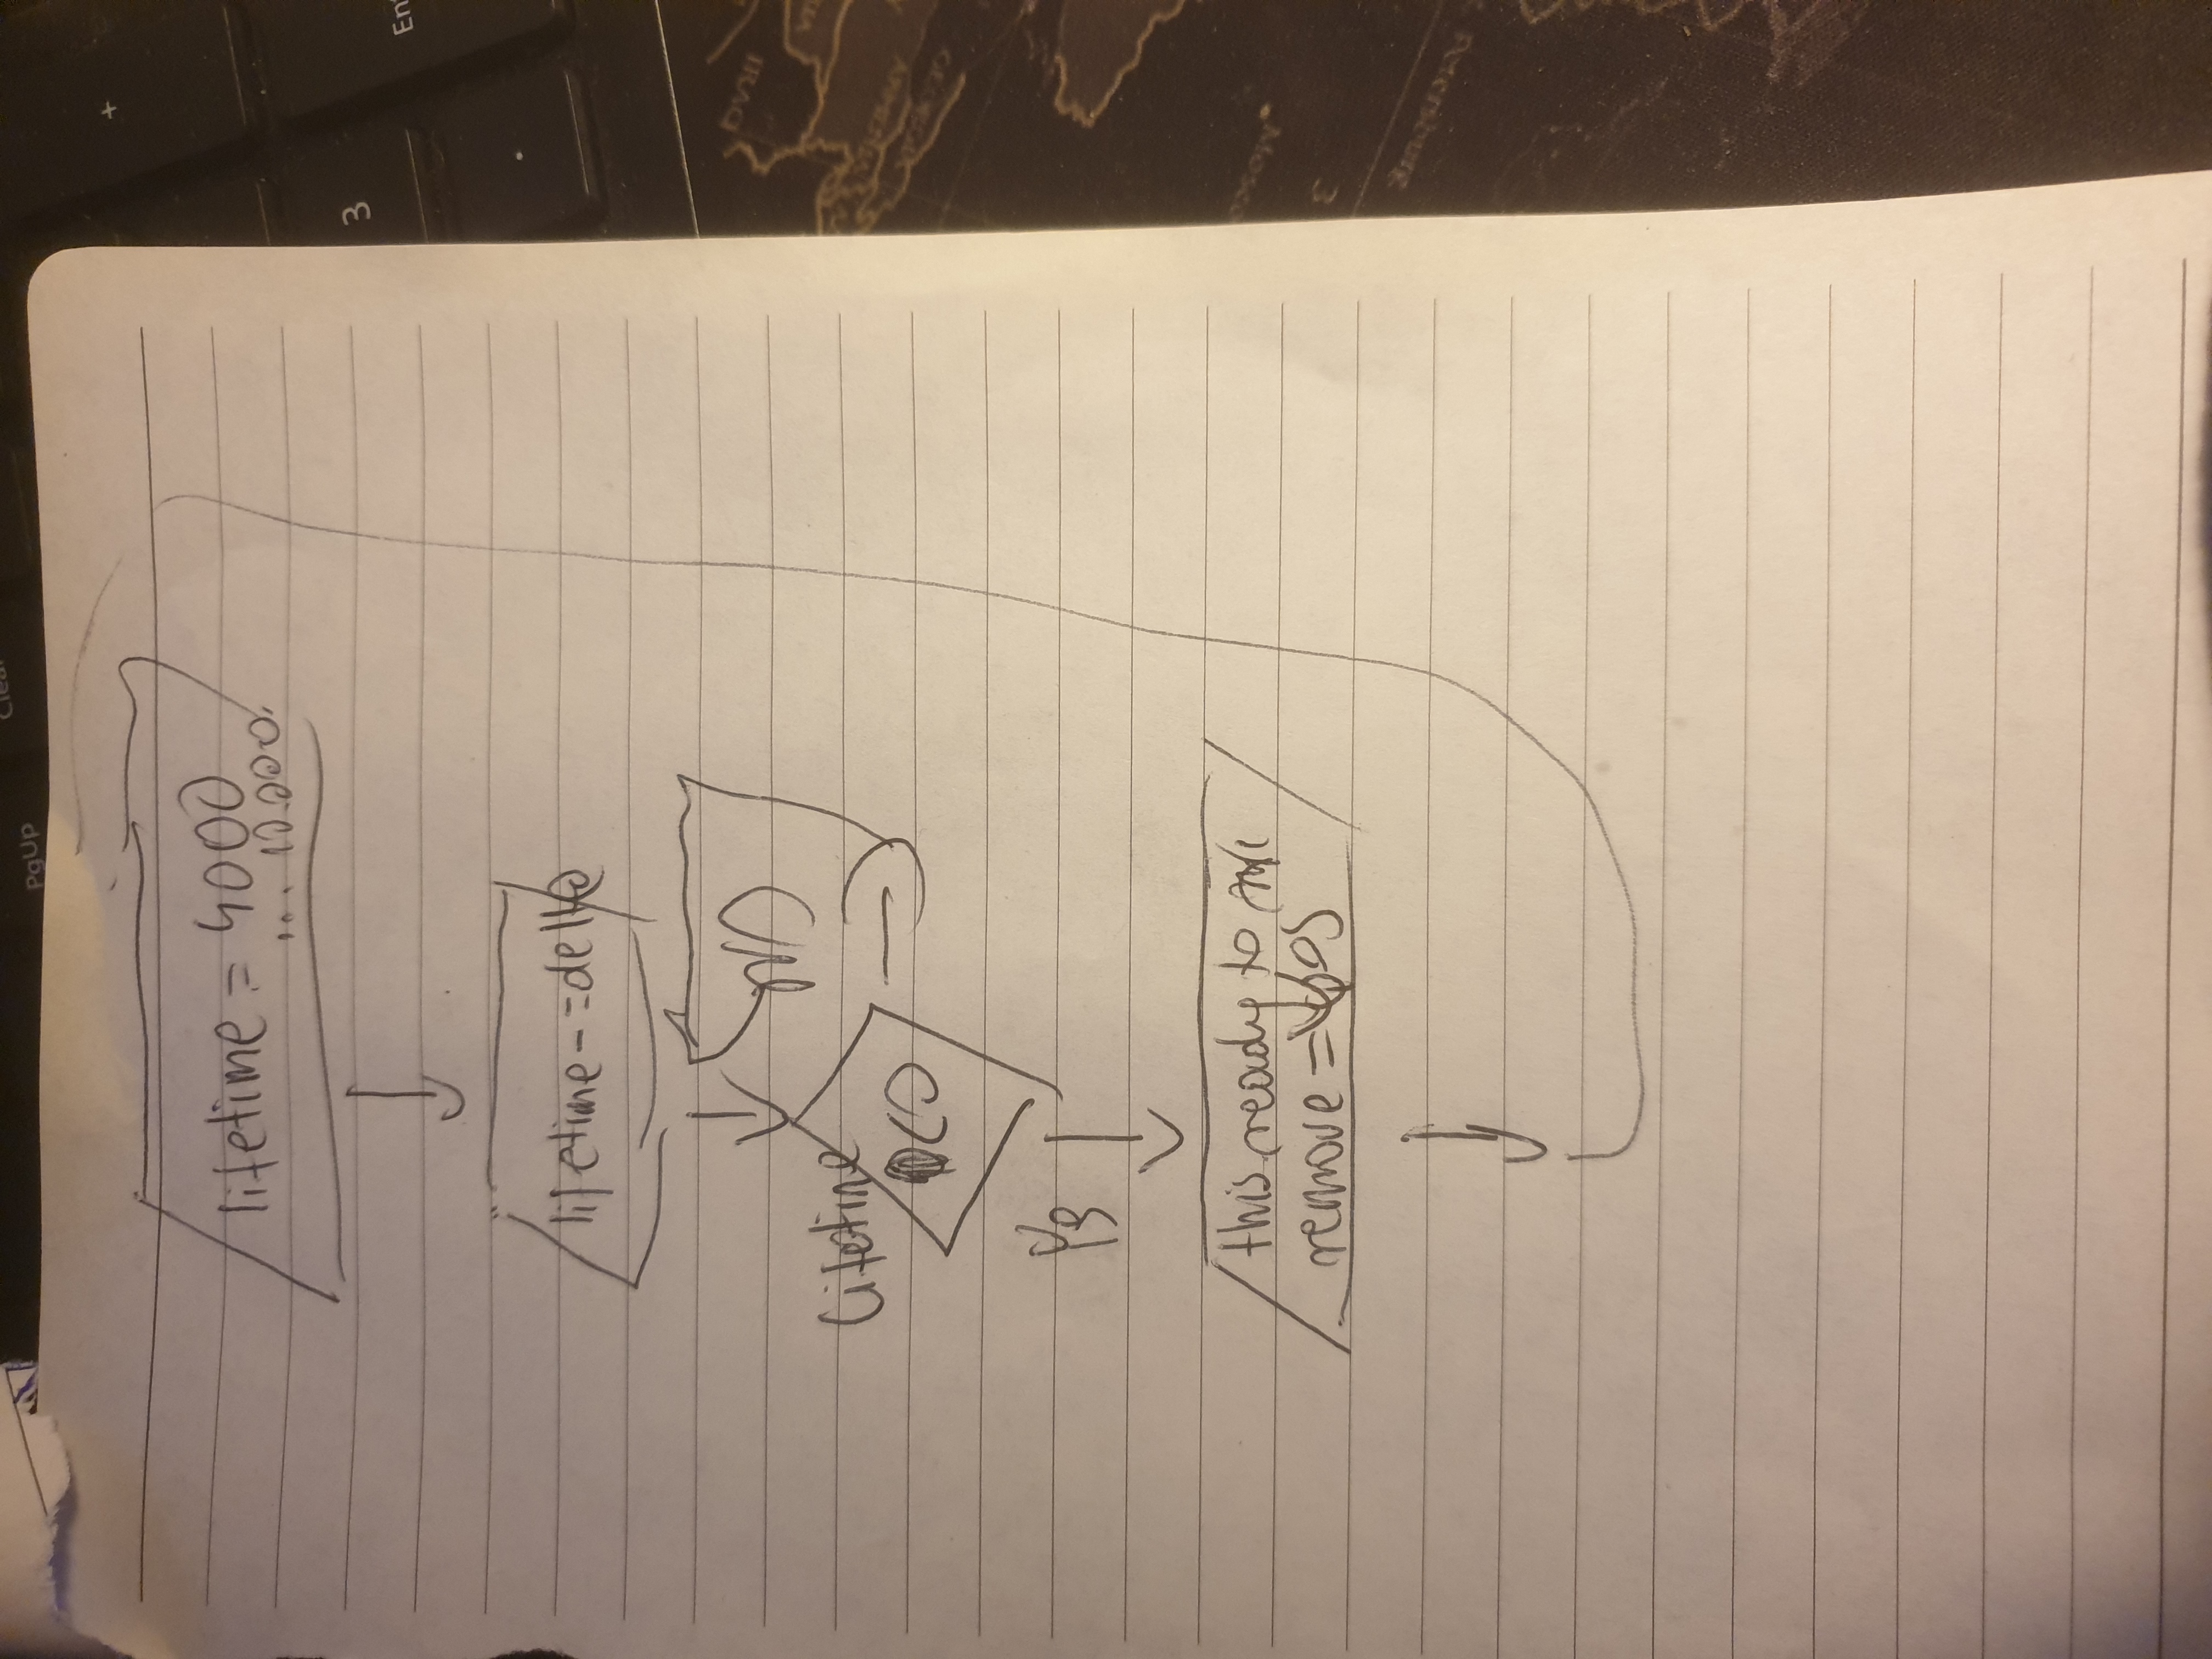 PgUp
Clear
+
lifetime = 4000
... 10.000.
3
Ent
.
lifetime -= delta
NO
Lifetime
<0
yes
this ready to
remove =
IRAQ
3